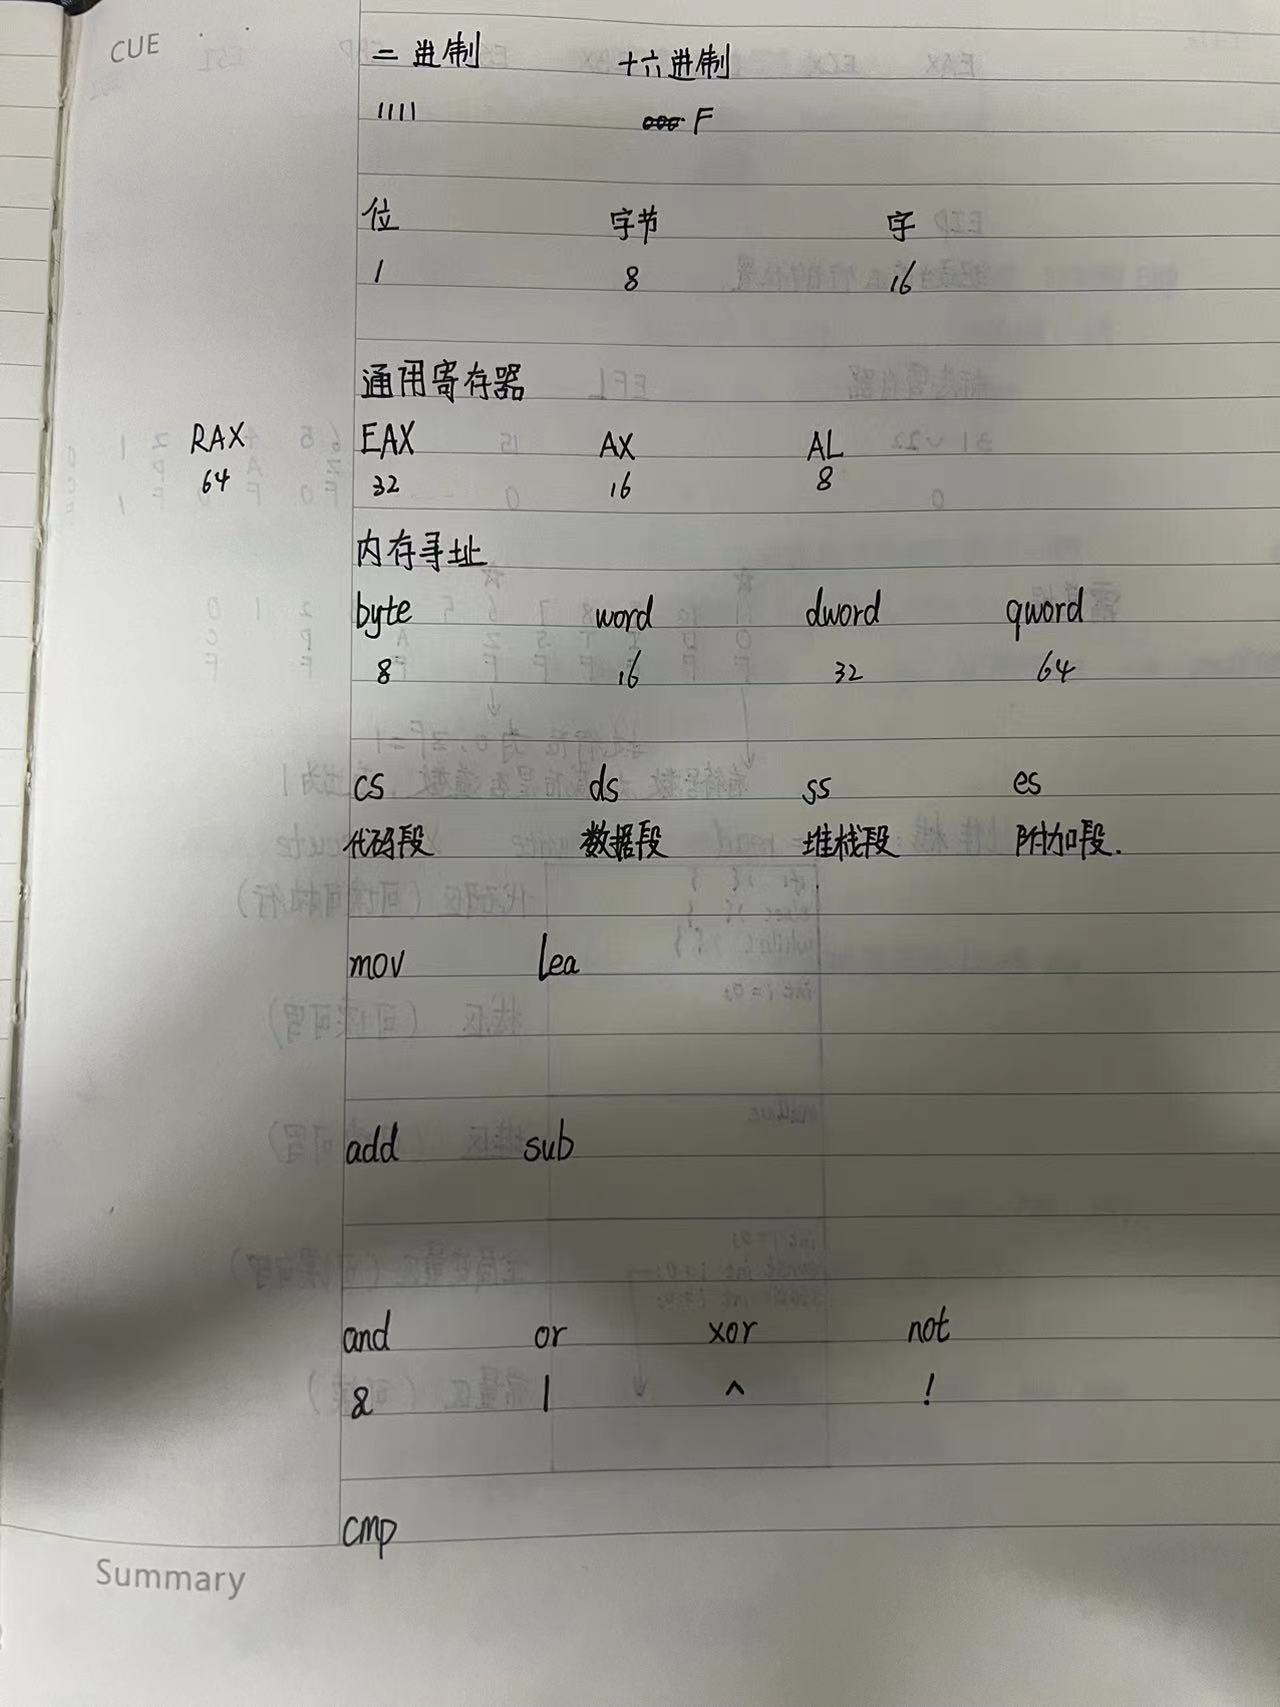 CUE
二进制 十六进制
1111 F
位 字节 字
1 8 16
通用寄存器
RAX EAX AX AL
64 32 16 8
内存寻址
byte word dword qword
8 16 32 64
cs ds ss es
代码段 数据段 堆栈段 附加段.
mov lea
add sub
and or xor not
& | ^ !
cmp
Summary